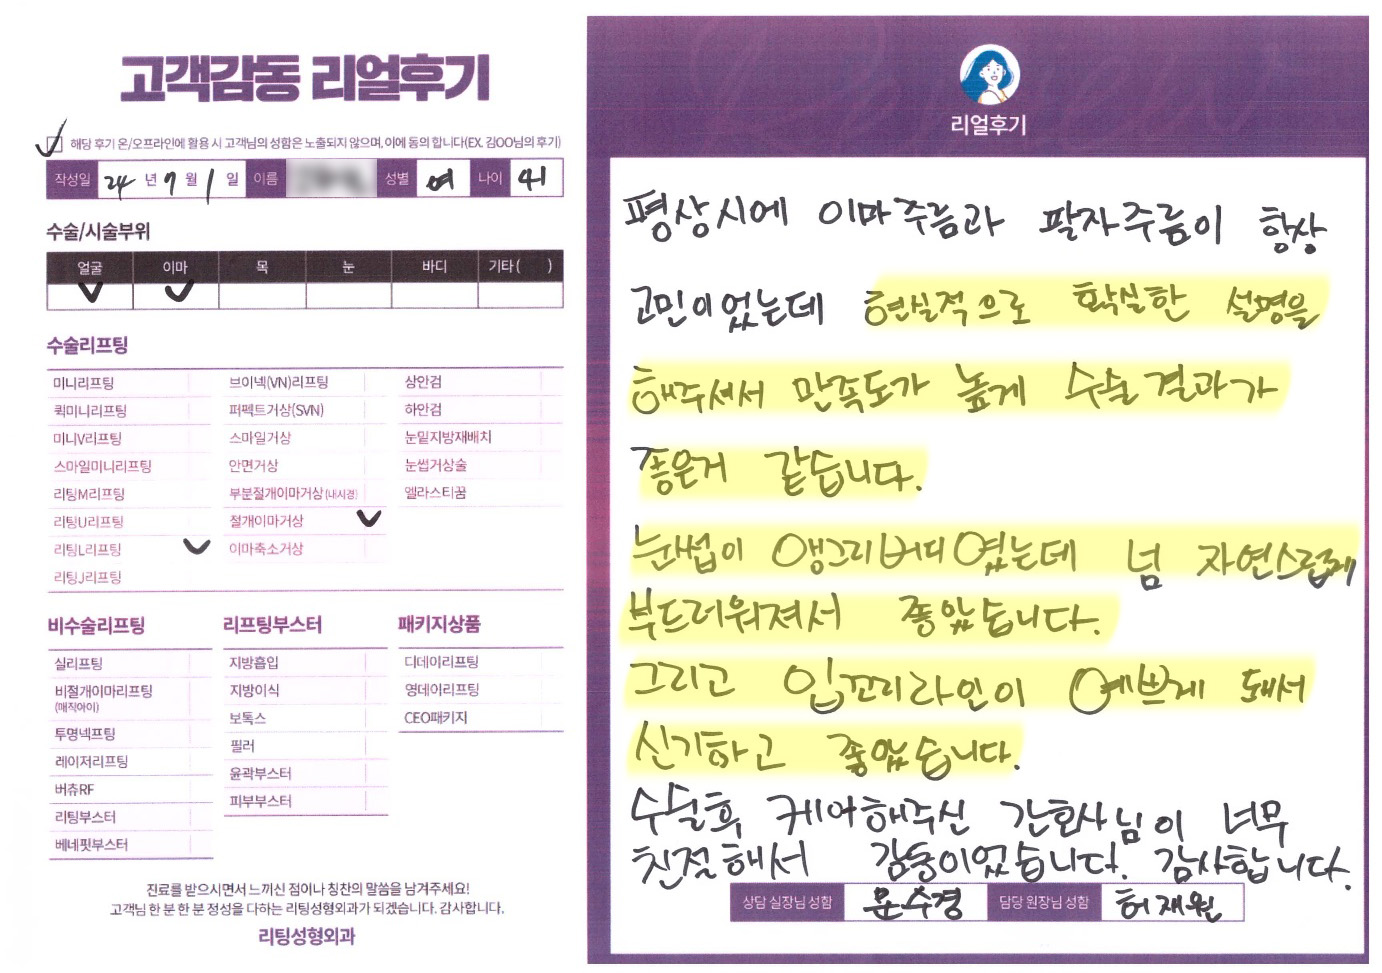 고객감동 리얼후기
해당 후기 온/오프라인에 활용 시 고객님의 성함은 노출되지 않으며, 이에 동의 합니다(EX. 김OO님의 후기)
작성일 24 년 7 월 1 일 이름 성별 여 나이 41
수술/시술부위
얼굴 이마 목 눈 바디 기타 ( )
수술리프팅
미니리프팅 브이넥(VN)리프팅 상안검
퀵미니리프팅 퍼펙트거상(SVN) 하안검
미니V리프팅 스마일거상 눈밑지방재배치
스마일미니리프팅 안면거상 눈썹거상술
리팅M리프팅 부분절개이마거상 (내시경) 엘라스티꿈
리팅U리프팅 절개이마거상
리팅L리프팅 이마축소거상
리팅J리프팅
비수술리프팅 리프팅부스터 패키지상품
실리프팅 지방흡입 디데이리프팅
비절개이마리프팅 지방이식 영데이리프팅
(매직아이) 보톡스 CEO패키지
투명넥프팅 필러
레이저리프팅 윤곽부스터
버츄RF 피부부스터
리팅부스터
베네핏부스터
진료를 받으시면서 느끼신 점이나 칭찬의 말씀을 남겨주세요!
고객님 한 분 한 분 정성을 다하는 리팅성형외과가 되겠습니다. 감사합니다.
리팅성형외과
리얼후기
평상시에 이마주름과 팔자주름이 항상
고민이었는데 현실적으로 확실한 설명을
해주셔서 만족도가 높게 수술결과가
좋은거 같습니다.
눈썹이 앵그리버디였는데 넘 자연스럽게
부드러워져서 좋았습니다.
그리고 입꼬리라인이 예쁘게 돼서
신기하고 좋았습니다.
수술후 케어해주신 간호사님이 너무
친절해서 감동이었습니다. 감사합니다.
상담 실장님 성함 문수경 담당 원장님 성함 허재원